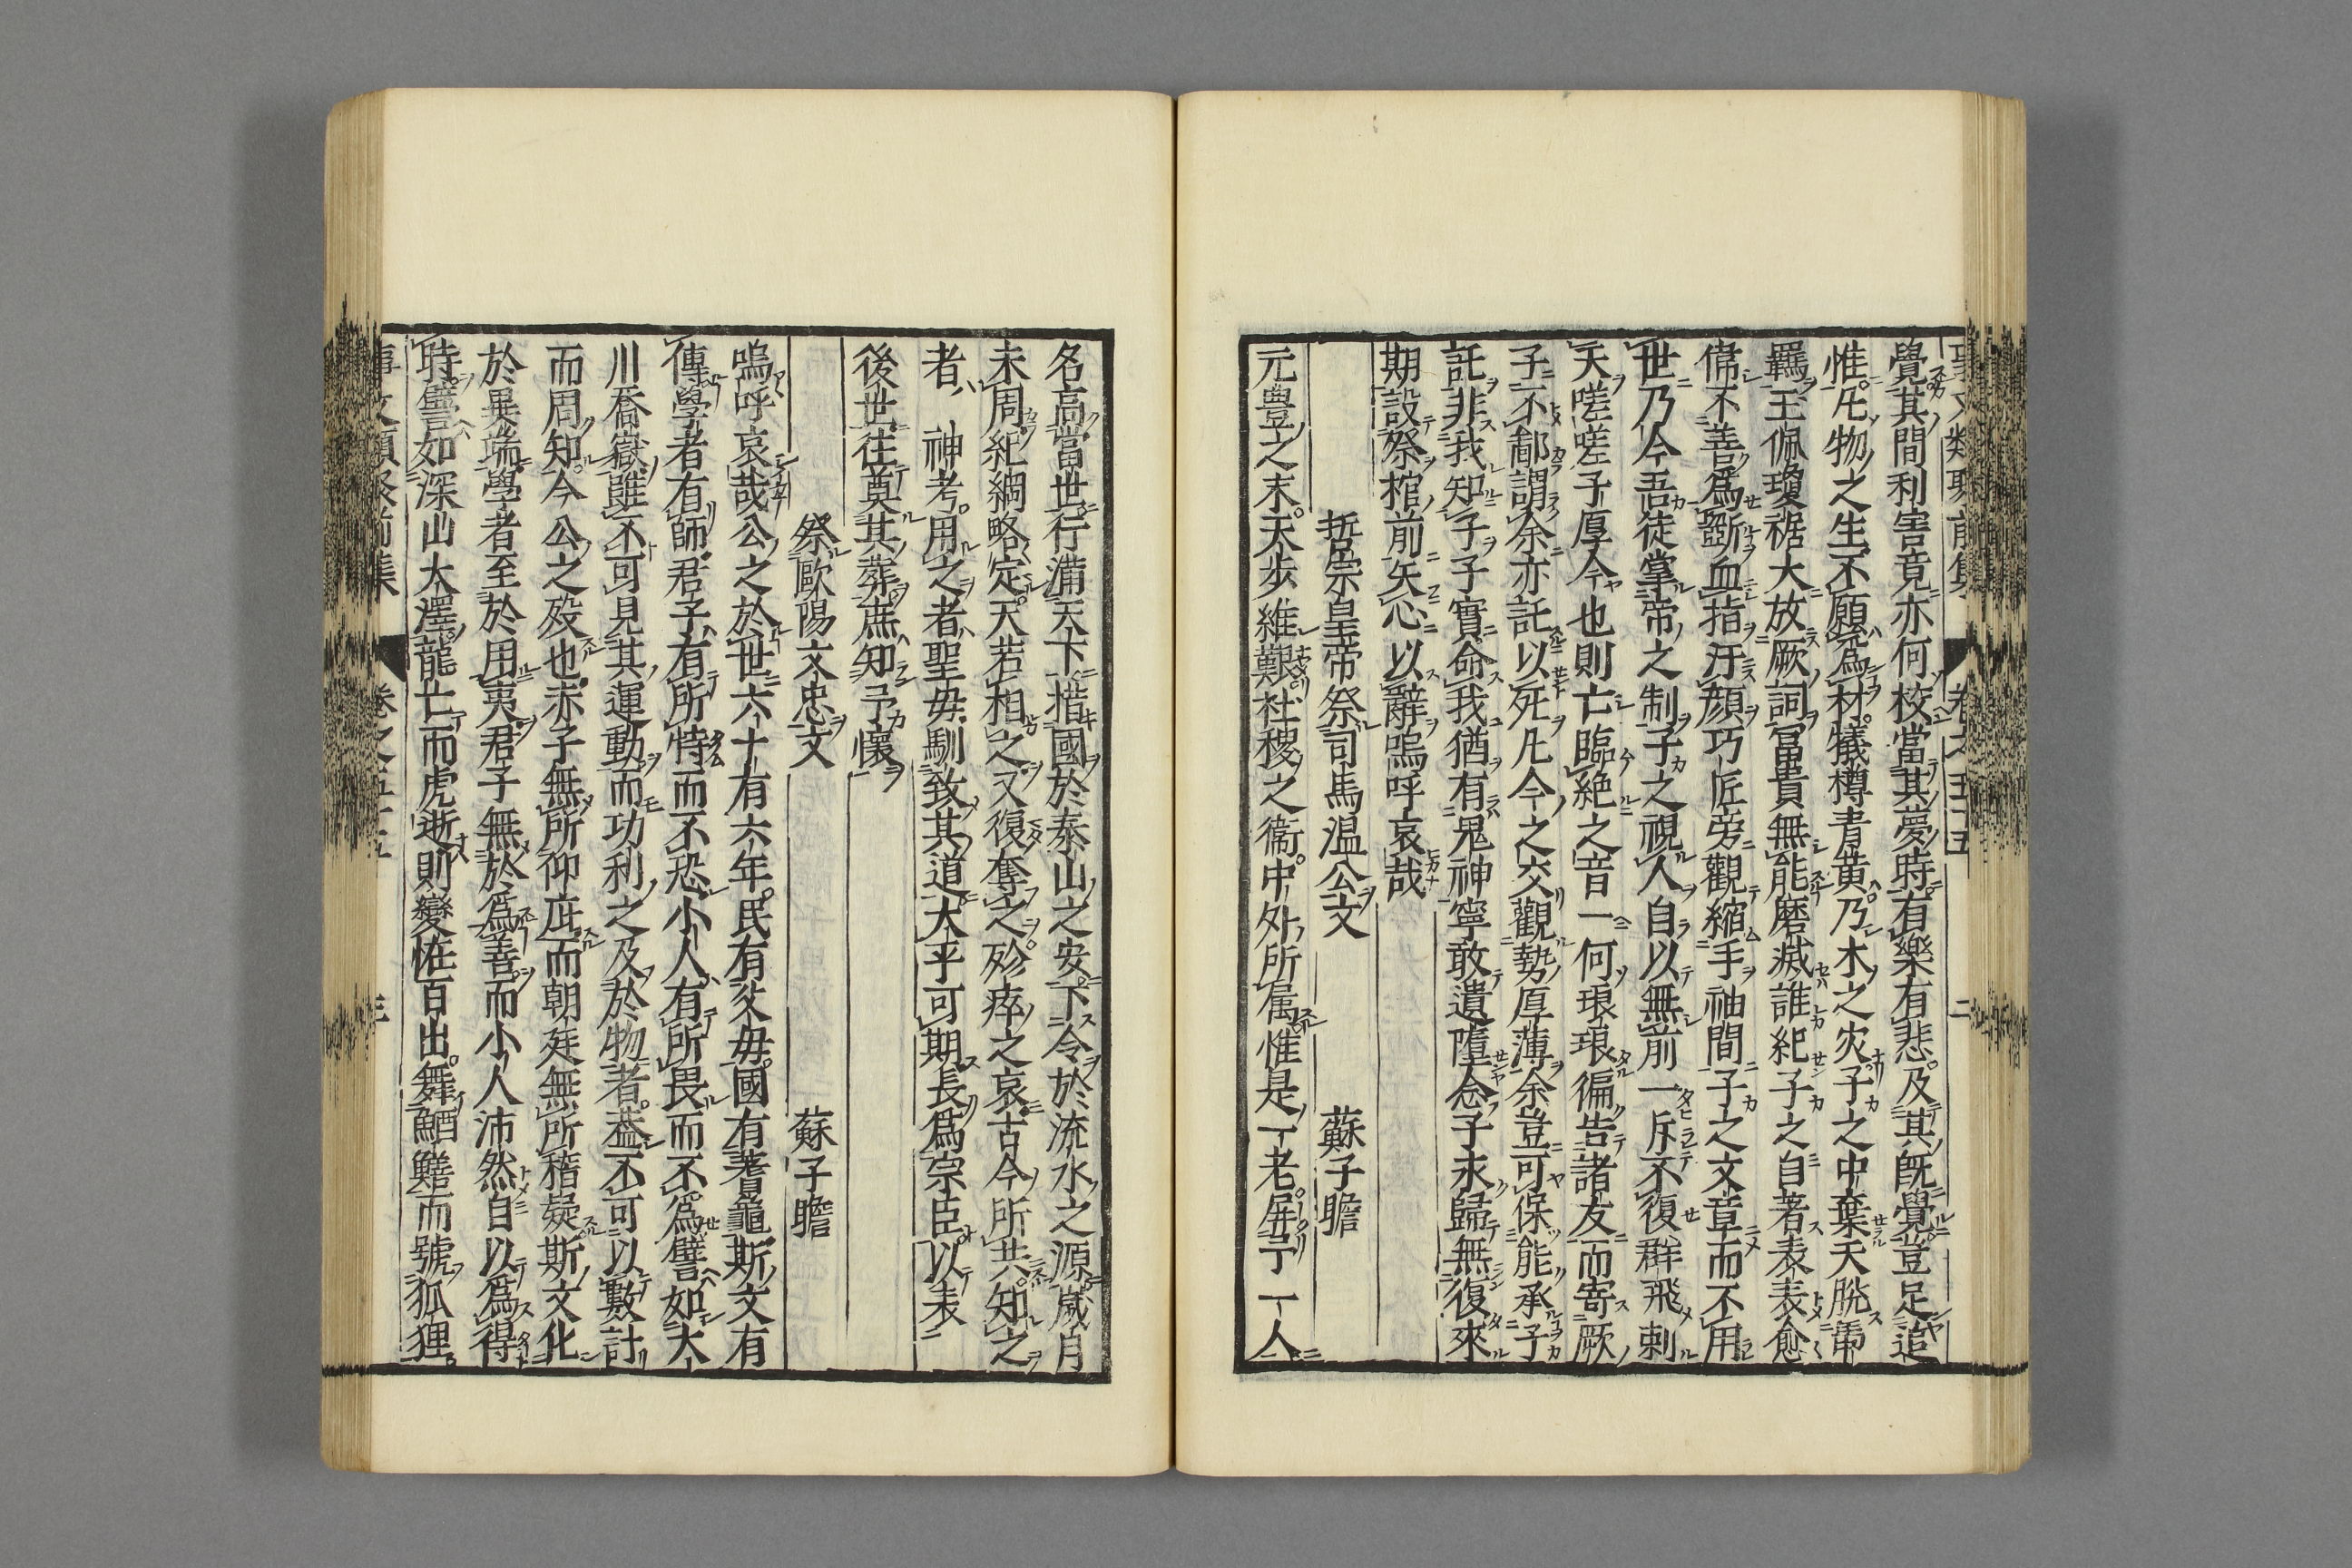 覺其間利害竟亦何校當其夢時有樂有悲及其既覺豈足追
惟凡物之生不願爲材犧樽青黃乃木之灾子之中棄天脫馽
羈玉佩瓊裾大放厥詞冨貴無能磨滅誰紀子之自著表表愈
偉不善爲斵血指汗顔巧匠旁觀縮手袖間子之文章而不用
世乃今吾徒掌帝之制子之視人自以無前一斥不復群飛刺
天嗟嗟子厚今也則亡臨絶之音一何琅琅徧告諸友而寄厥
子不鄙謂余亦託以死凡今之交觀勢厚薄余豈可保能承子
託非我知子子實命我猶有鬼神寧敢遺墮念子永歸無復來
期設祭棺前矢心以辭嗚呼哀哉
哲宗皇帝祭司馬温公文 蘇子瞻
元豊之末天步維艱社稷之衞中外所属惟是一老屏予一人
名高當世行滿天下措國於泰山之安下令於流水之源歲月
未周紀綱略定天若相之又復奪之殄瘁之哀古今所共知之
者神考用之者聖母馴致其道太平可期長爲宗臣以表
後世往奠其葬庶知予懷
祭歐陽文忠文 蘇子瞻
嗚呼哀哉公之於世六十有六年民有父毋國有蓍龜斯文有
傳學者有師君子有所恃而不恐小人有所畏而不爲譬如大
川喬嶽雖不可見其運動而功利之及於物者蓋不可以數計
而周知今公之殁也赤子無所仰庇而朝廷無所稽疑斯文化
於異端學者至於用夷君子無於爲善而小人沛然自以爲得
時譬如深山大澤龍亡而虎逝則變怪百出舞鰌鱔而號狐狸
事文類聚前集 卷之五十五 三